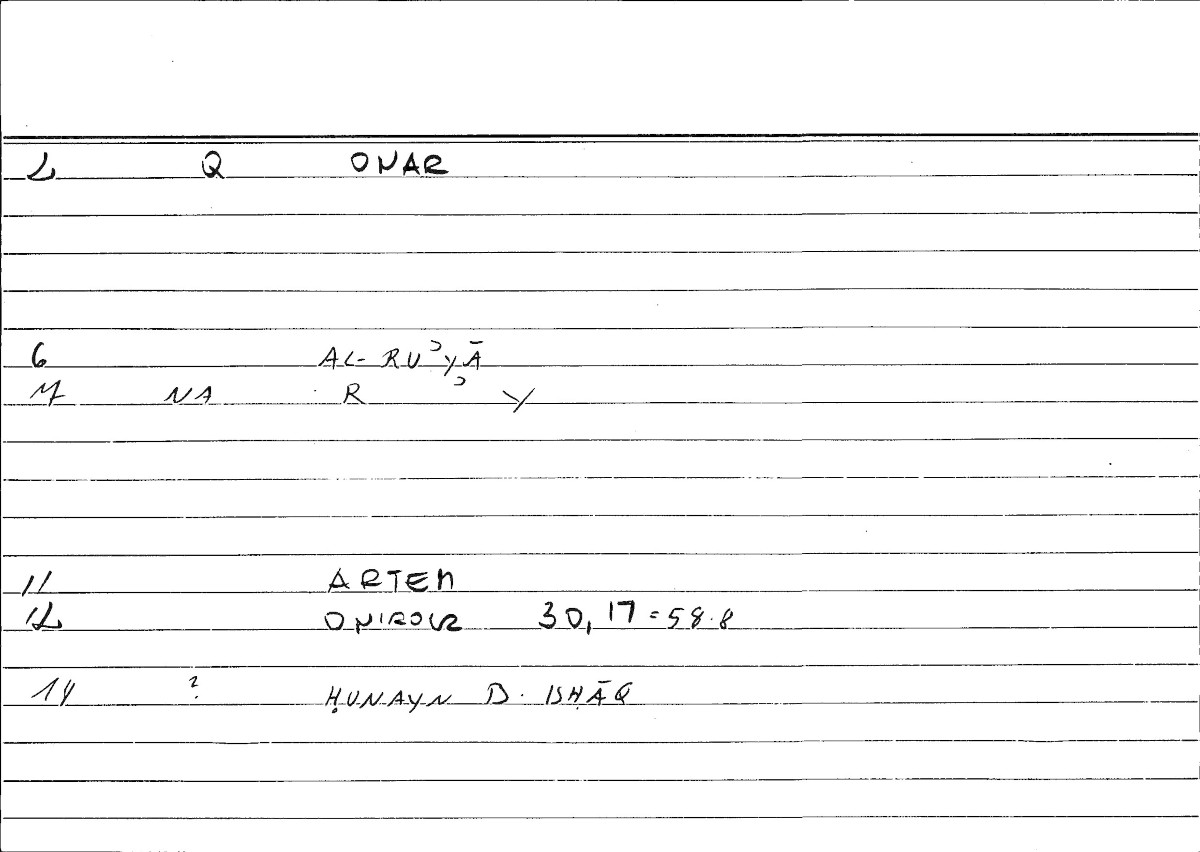 2 Q ONAR
6 AL-RUʾYĀ
M NA R ʾ Y
11 ARTEM
12 ONIROCR 30,17=58.8
14 ? ḤUNAYN B. ISḤĀQ